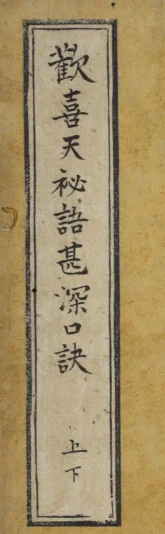 歡喜天秘語甚深口訣
上下